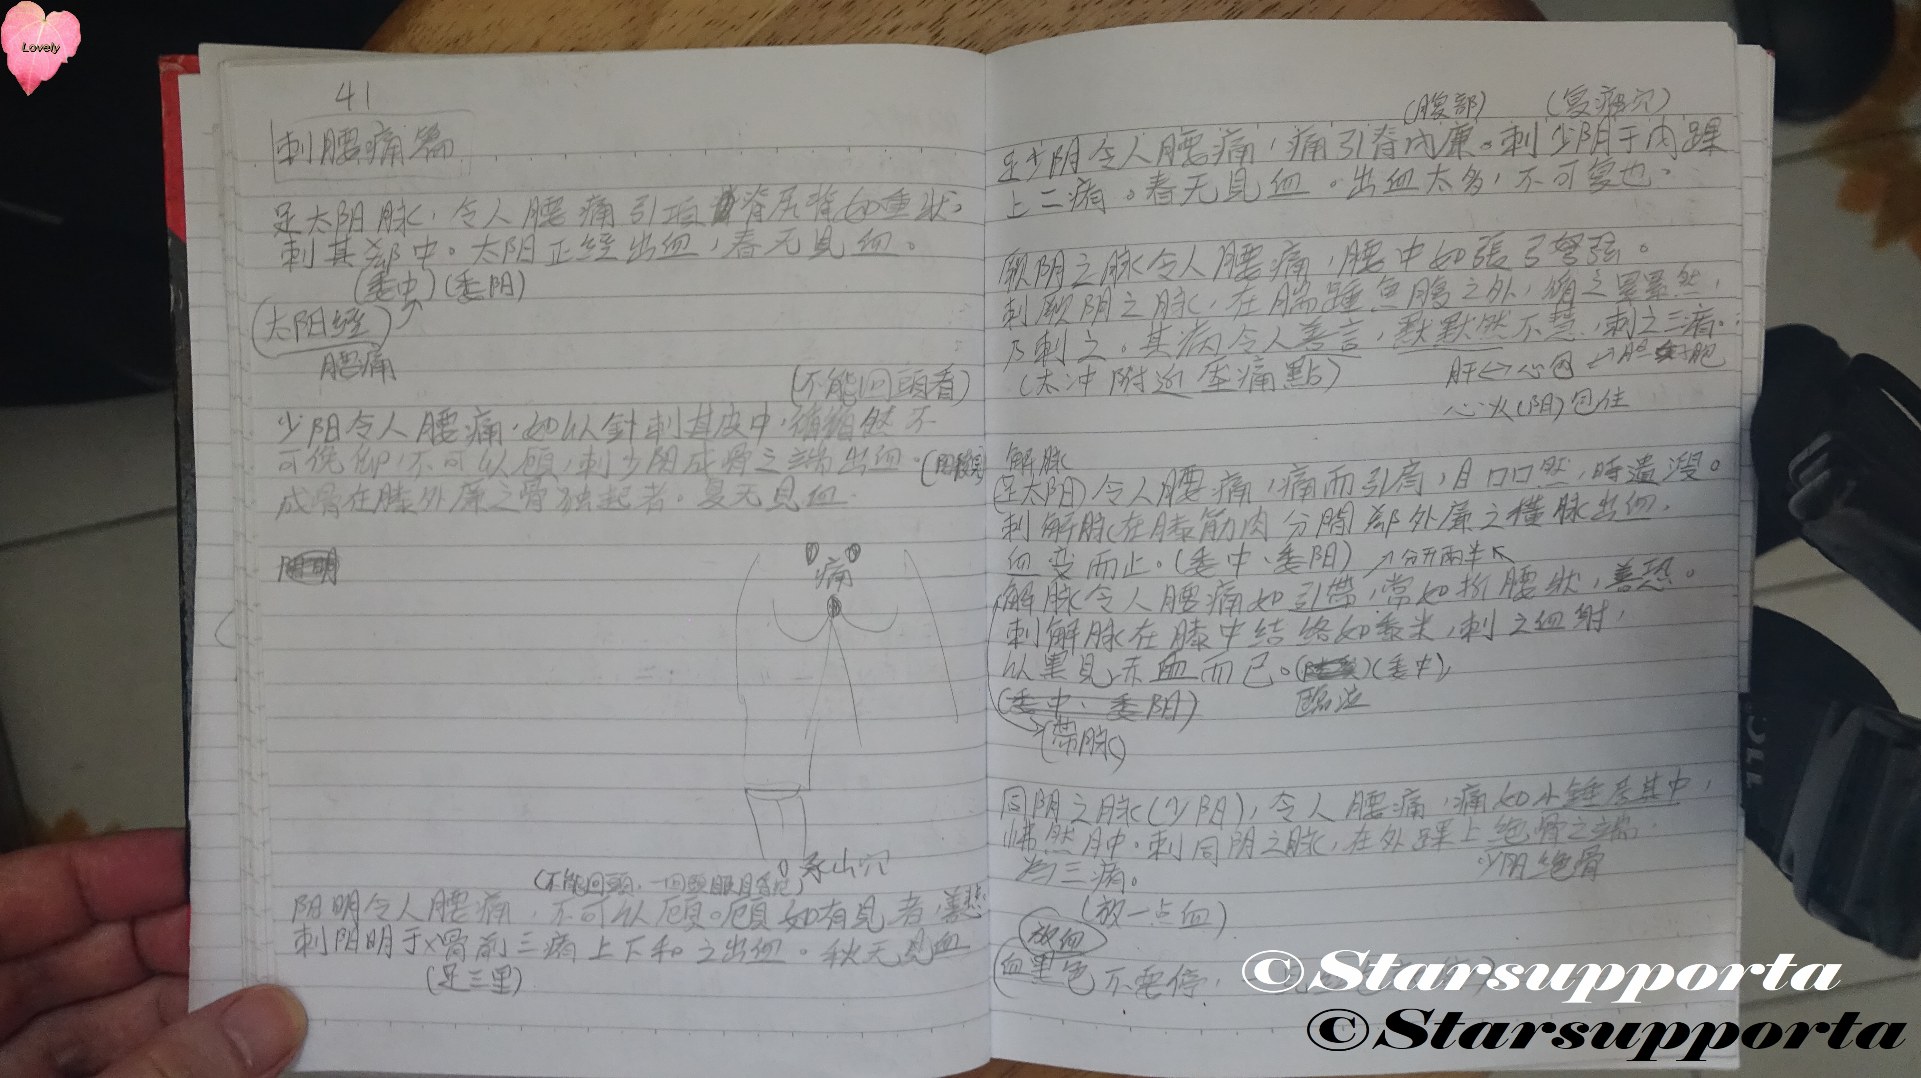 Lovely
41
刺腰痛篇
足太阳脉，令人腰痛引项脊尻背如重狀。
刺其郄中。太阳正经出血，春无見血。
(委中)(委阳)
太阳经
腰痛
(不能回頭看)
少阳令人腰痛，如以針刺其皮中，循循然不
可俛仰，不可以顾，刺少阳成骨之端出血。
成骨在膝外廉之骨独起者。夏无見血
痛
承山穴
(不能回頭，一回頭眼
阳明令人腰痛，不可以顾。顾如有見者，善悲
刺阳明于骨前三痏上下和之出血。秋无見血
(足三里)
(腹部) (复溜穴)
足少阴令人腰痛，痛引脊内廉。刺少阴于内踝
上二痏。春无見血。出血太多，不可复也。
厥阴之脉令人腰痛，腰中如張弓弩弦。
刺厥阴之脉，在腨踵魚腹之外，循之累累然，
乃刺之。其病令人善言，默默然不慧，刺之三痏。
(太冲附近压痛點)
肝↔心包
心火(阴)包住
解脉
(足太阳)令人腰痛，痛而引肩，目口口然，時遺溲。
刺解脉在膝筋肉分間郄外廉之横脉出血，
血变而止。(委中、委阳) ↗分开兩半↖
解脉令人腰痛如引帶，常如折腰狀，善恐。
刺解脉在膝中结络如黍米，刺之血射，
以黑見赤血而已。(委中)
(委中、委阳)
临泣
(带脉)
同阴之脉(少阳)，令人腰痛，痛如小錘居其中，
怫然肿。刺同阴之脉，在外踝上绝骨之端
为三痏。
少阳绝骨
(放一点血)
放血
血黑色不要停，
©Starsupporta
©Starsupporta